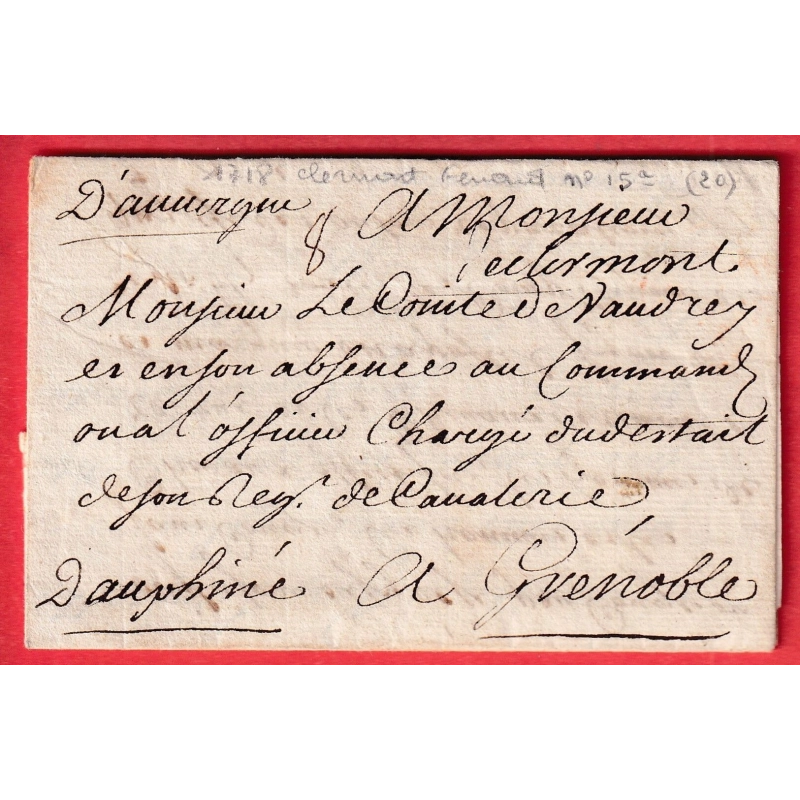 1718 clermont ferrand nº 15a (20)
D'auuergne A Monsieur
8 declermont
Monsieur Le Comte De Vaudrey
et en son absence au Command
ou a l'officier Chargé du destait
de son Reg. de Caualerie,
Dauphiné A Grénoble